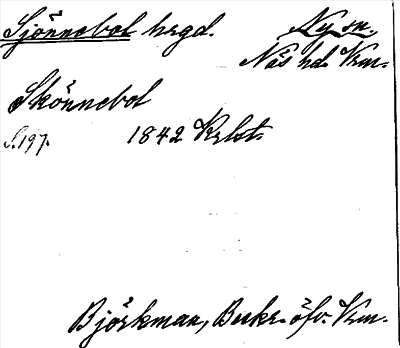 Sjönnebol hrgd. Ny sn.
Näs hd. Vrm.
Skönnebol
S.197. 1842 Krlst.
Björkman, Beskr. öfv. Vrm.